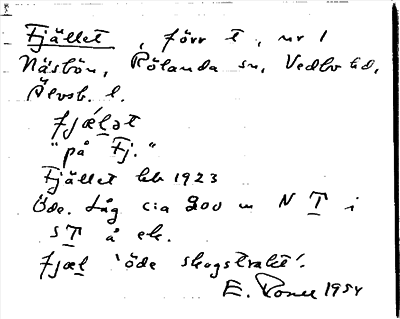 Fjället, förr t, nr 1
Näsbön, Rölanda sn, Vedbo hd,
Älvsb. l.
fjæ̀lət
"på Fj."
Fjället lib 1923
Öde. Låg cia 200 m N T i
S T å ek.
fjæl 'öde skogstrakt'.
E. 1954